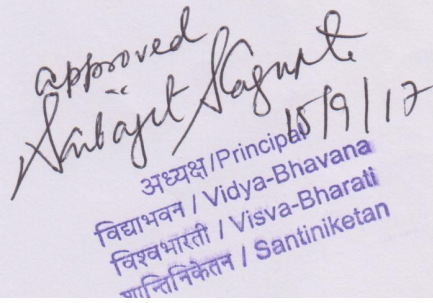 approved
15/9/17
अध्यक्ष/Principal
विद्याभवन / Vidya-Bhavana
विश्वभारती / Visva-Bharati
शान्तिनिकेतन / Santiniketan